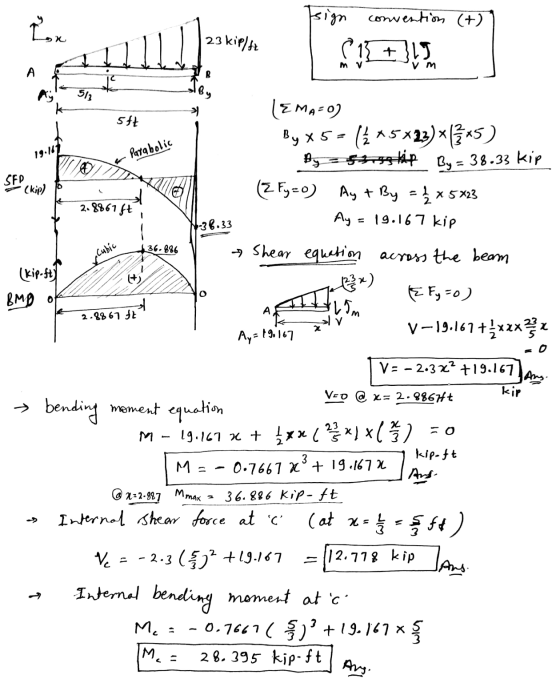 y
x
23 kip/ft
A
B
C
Ay
5/3
By
5 ft
sign convention (+)
M V + V M
(ΣMA=0)
By × 5 = (1/2 × 5 × 23) × (2/3 × 5)
By = 38.33 kip
(ΣFy=0) Ay + By = 1/2 × 5 × 23
Ay = 19.167 kip
19.167
Parabolic
SFD (kip)
0
(+)
(-)
2.8867 ft
-38.33
cubic
36.886
(kip-ft)
(+)
BMD
0
0
2.8867 ft
→ Shear equation across the beam
(23/5 x)
A
V
M
x
Ay = 19.167
(ΣFy=0)
V - 19.167 + 1/2 × x × 23/5 x = 0
V = -2.3x² + 19.167 kip Ans.
V=0 @ x = 2.8867ft
→ bending moment equation
M - 19.167 x + 1/2 × x (23/5 × x) × (x/3) = 0
M = - 0.7667 x³ + 19.167 x kip-ft Ans.
@ x=2.887 Mmax = 36.886 kip-ft
→ Internal shear force at 'C' (at x = 1/3 = 5/3 ft)
Vc = -2.3 (5/3)² + 19.167 = 12.778 kip Ans.
→ Internal bending moment at 'c'
Mc = - 0.7667 (5/3)³ + 19.167 × 5/3
Mc = 28.395 kip-ft Ans.